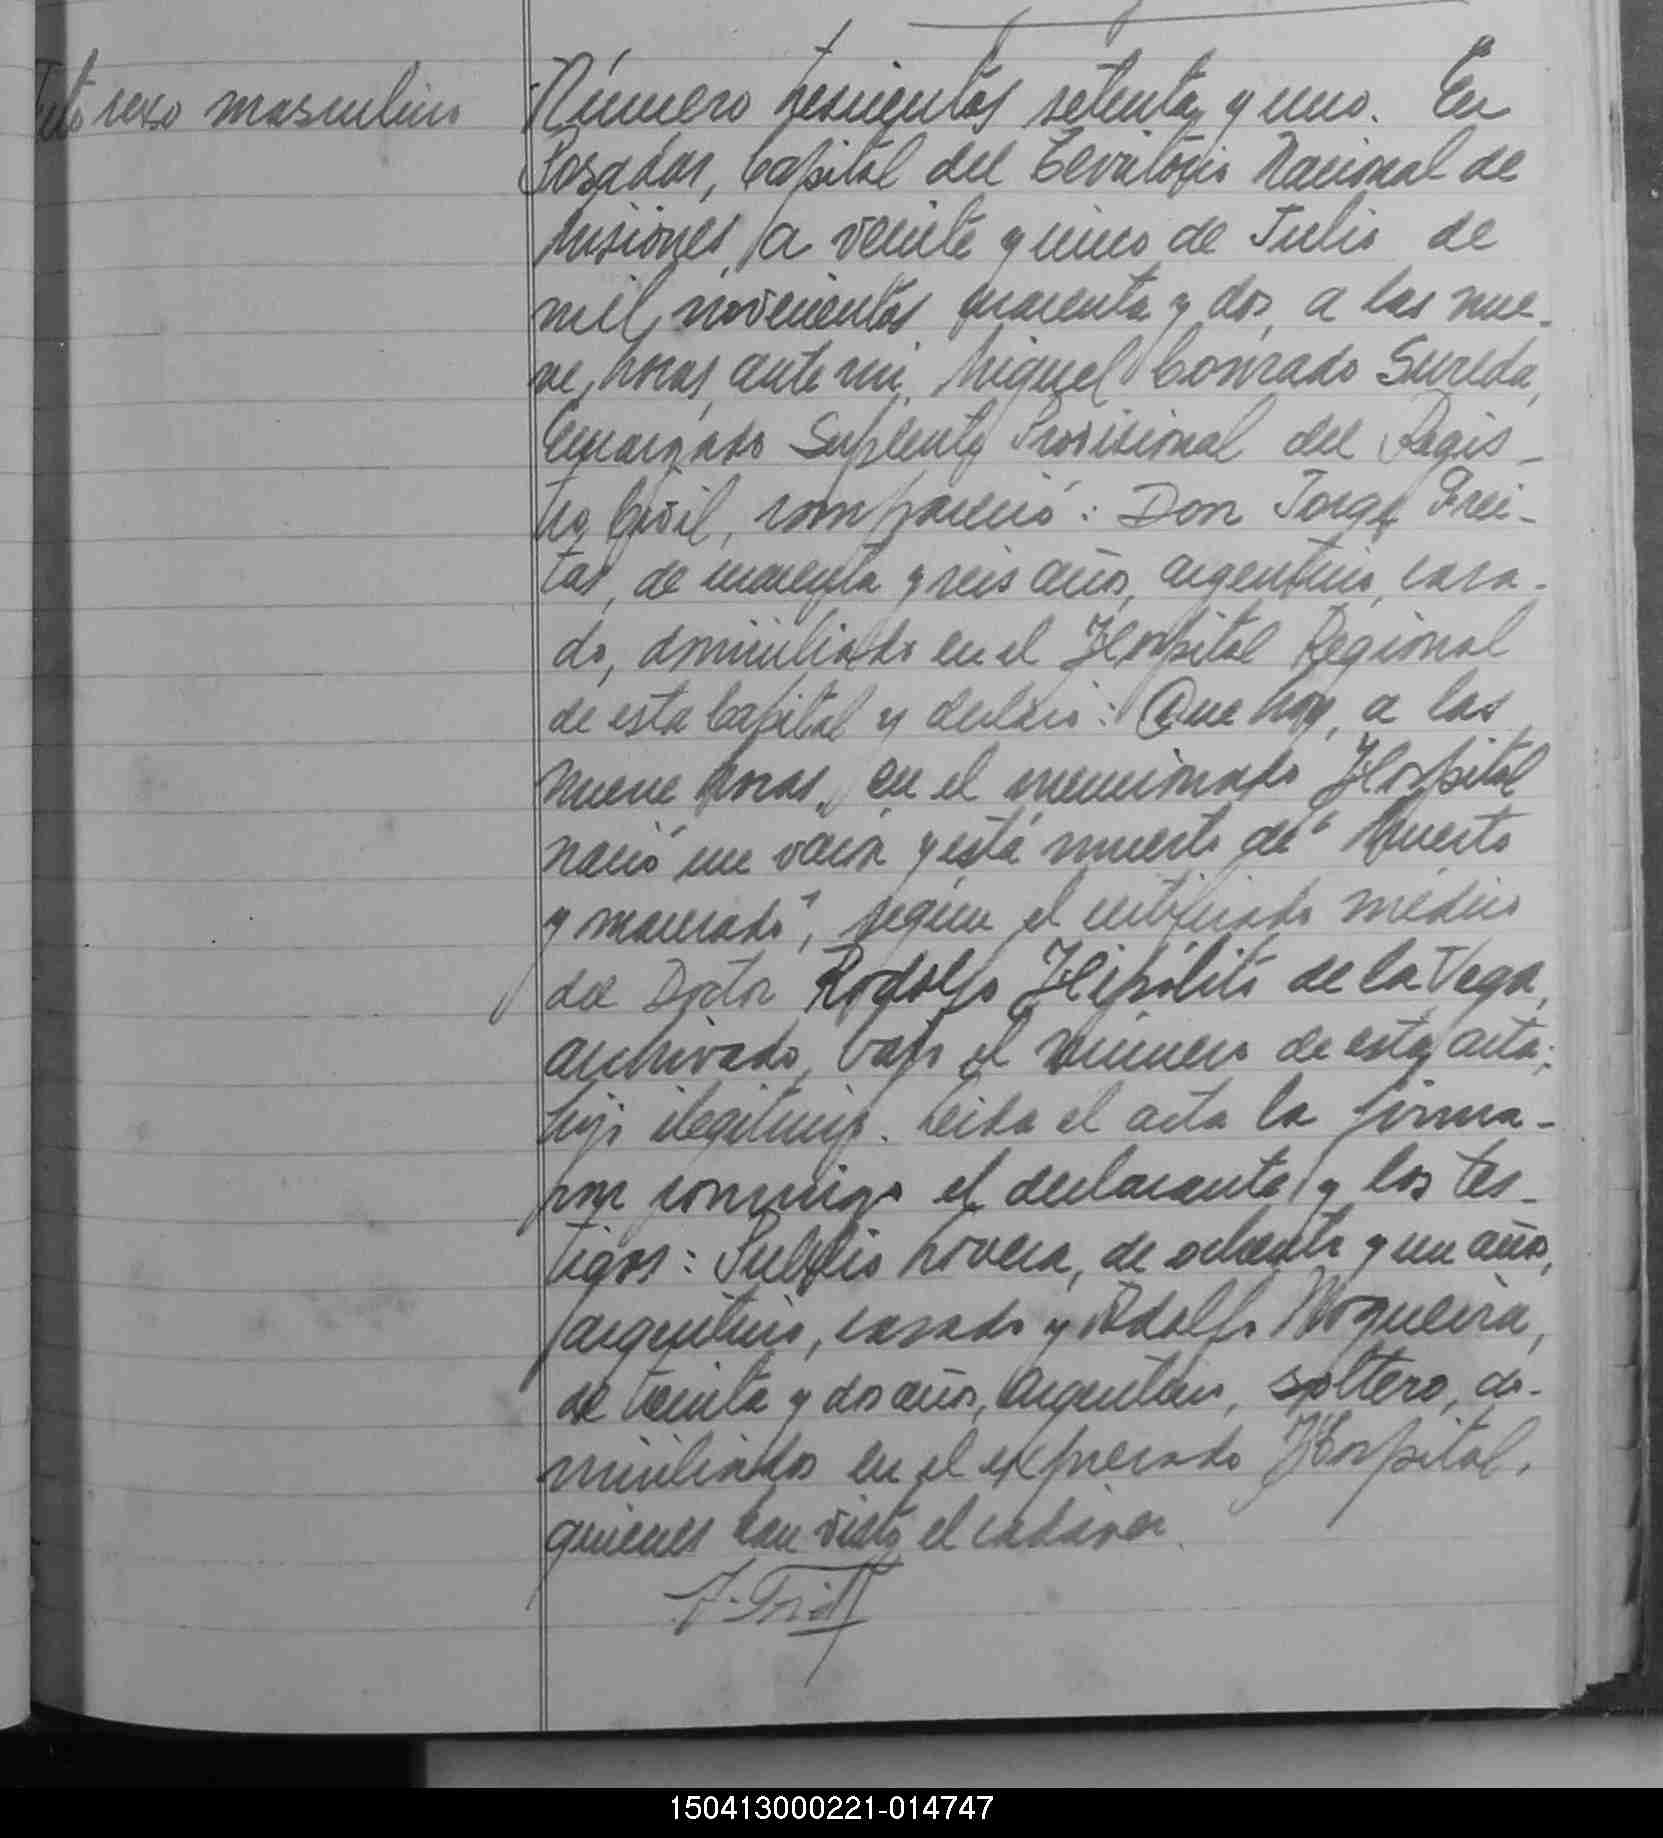 Feto sexo masculino
Número trescientos setenta y uno. En
Posadas, Capital del Territorio Nacional de
Misiones, a veinte y cinco de Julio de
mil novecientos cuarenta y dos, a las nue-
ve horas, ante mi, Miguel Conrado Sureda,
Encargado Suplente Provisional del Regis-
tro Civil, compareció: Don Jorge Frei-
tas, de cuarenta y seis años, argentino, casa-
do, domiciliado en el Hospital Regional
de esta Capital y declaró: Que hoy, a las
nueve horas, en el mencionado Hospital
nació un varón y está muerto de "Muerto
y macerado", según el certificado médico
del Doctor Rodolfo Hipólito de la Vega,
archivado bajo el número de esta acta;
hijo ilegítimo. Leida el acta la firma-
ron conmigo el declarante y los tes-
tigos: Publio Rivera, de ochenta y un años,
argentino, casado y Adolfo Nogueira,
de treinta y dos años, argentino, soltero, do-
miciliados en el expresado Hospital,
quienes han visto el cadáver.
150413000221-014747